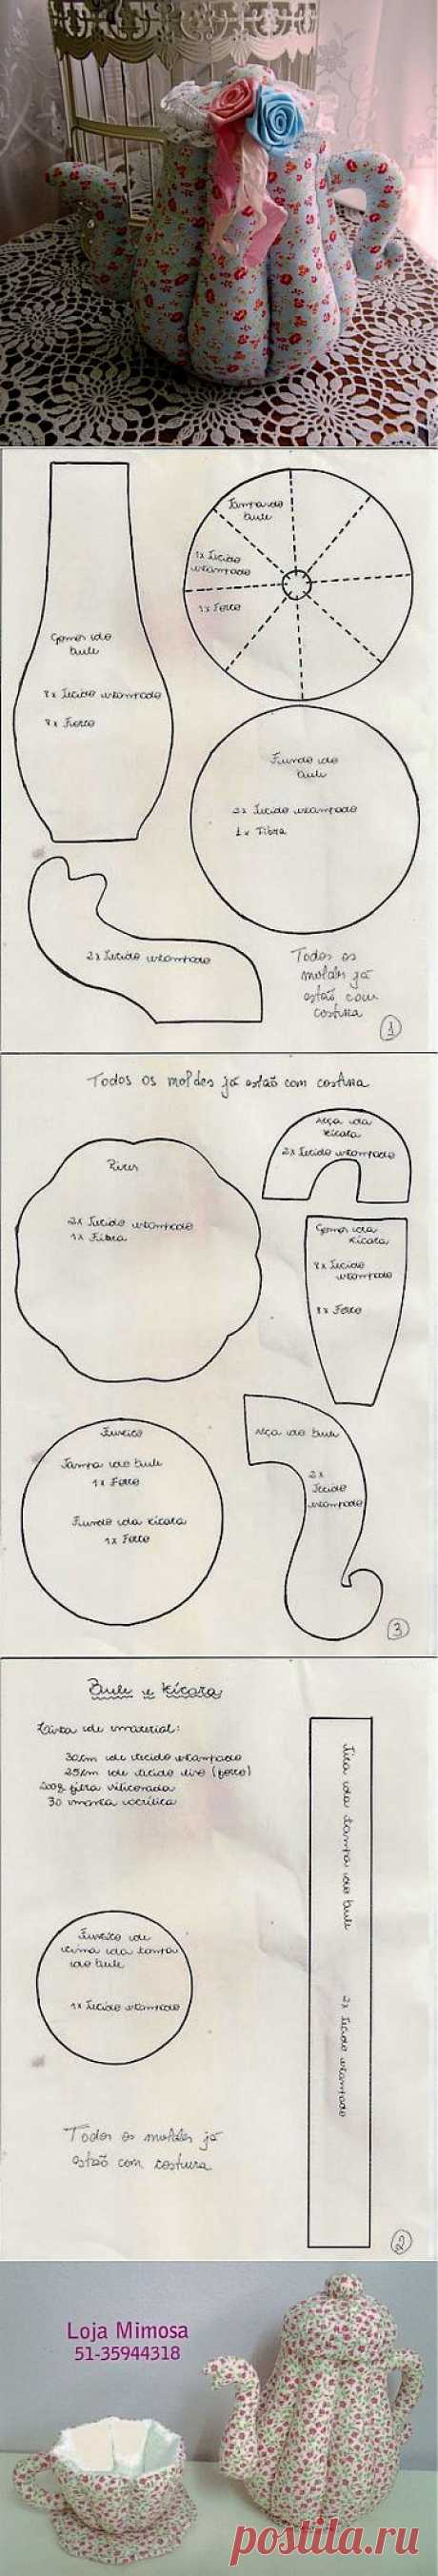 Tampa do
bule
1x Tecido
estampado
1x Forro
Gomos do
bule
8x Tecido estampado
8x Forro
Fundo do
bule
2x Tecido estampado
1x Fibra
2x Tecido estampado
Todos os
moldes já
estão com
costura
1
Todos os moldes já estão com costura
Pires
2x Tecido estampado
1x Fibra
Alça da
xícara
2x Tecido estampado
Gomos da
xícara
8x Tecido
estampado
8x Forro
Fuxico
Tampa do bule
1x Forro
Fundo da xícara
1x Forro
Alça do bule
2x
Tecido
estampado
3
Bule e Xícara
Lista de material:
30cm de tecido estampado
25cm de tecido liso (forro)
200g fibra siliconada
30 manta acrílica
Tira da tampa do bule
2x Tecido estampado
Fuxico de
cima da tampa
do bule
1x Tecido estampado
Todos os moldes já
estão com costura
2
Loja Mimosa
51-35944318
postila.ru